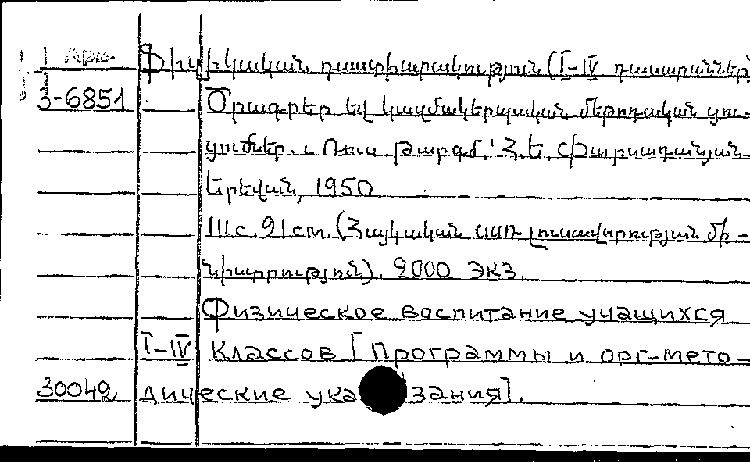 Ֆիզիկական դաստիարակություն (I-IV դասարաններ)
3-6851 Ծրագրեր եվ կազմակերպչական մեթոդական ցու-
ցումներ. Ռուս. թարգմ.՝ Հ. Ե.
Երեվան, 1950
111с. 21 cm. (Հայկական ՍՍՌ լուսավորության մի-
նիստրություն). 2000 экз.
Физическое воспитание учащихся
I-IV классов [Программы и орг-мето-
30042 дические указания].